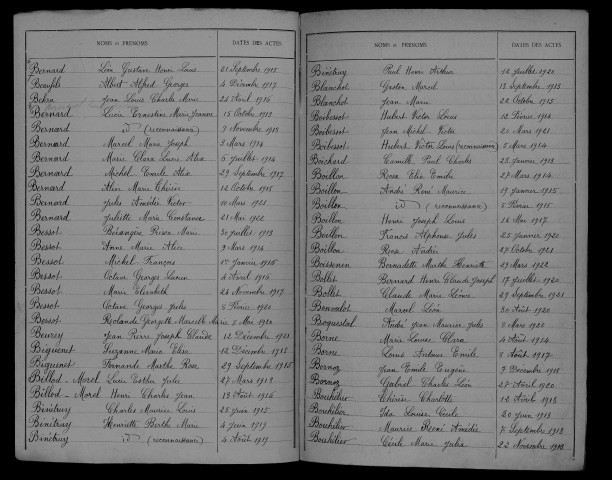 NOMS et PRÉNOMS DATES DES ACTES
Bernard Léon Gustave Henri Louis 21 Septembre 1915
Beaufils Albert Alfred Georges 4 Décembre 1917
Jean Louis Charles Marie 25 Avril 1916
Bernard Lucie Ernestine Marie Jeanne 15 Octobre 1913
Bernard id (reconnaissance) 3 Novembre 1913
Bernard Marcel Marie Joseph 3 Mars 1914
Bernard Marie Clara Lucie Alix 5 Juillet 1914
Bernard Michel Emile Alix 29 Septembre 1917
Bernard Marie Thérèse 12 Octobre 1915
Bernard Jules Amédée Victor 10 Mars 1921
Bernard Juliette Marie Constance 21 Mai 1922
Bessot Bérangère Marie 30 Juillet 1913
Bessot Anne Marie Alice 9 Mars 1914
Bessot Michel François Janvier 1915
Bessot Octave Georges Lucien 4 Avril 1916
Bessot Marie Elisabeth 24 Novembre 1917
Bessot Octave Georges Jules 5 Février 1920
Bessot Georgette Marcelle Marie 2 Mai 1920
Beurey Jean Pierre Joseph Claude 12 Décembre 1921
Biguenet Suzanne Marie Elise 12 Décembre 1918
Biguenet Fernande Marthe Rose 29 Septembre 1915
Billod-Morel Lucie Esther Julie 27 Mars 1913
Billod-Morel Henri Charles Jean 13 Août 1916
Binétruy Charles Maurice Louis 25 Juin 1915
Binétruy Henriette Berthe Marie 4 Juin 1919
Binétruy id (reconnaissance) 4 Août 1919
NOMS et PRÉNOMS DATES DES ACTES
Binétruy Paul Henri Arthur 12 Juillet 1920
Blanchot Gaston Marcel 13 Septembre 1913
Blanchot Jean Marie 22 Octobre 1915
Boibessot Hubert Victor Louis 12 Février 1914
Boibessot Jean Michel Victor 20 Mars 1921
Boibessot Hubert Victor Louis (reconnaissance) 5 Mars 1914
Boichard Camille Paul Charles 23 Janvier 1913
Boillon Rose Elise Emilie 29 Mars 1914
Boillon André René Maurice 19 Janvier 1915
Boillon id (reconnaissance) 5 Février 1915
Boillon Henri Joseph Louis 16 Mai 1917
Boillon Francis Alphonse Jules 25 Janvier 1922
Boillon Rose Andrée 27 Octobre 1921
Boissenin Bernadette Marthe Henriette 29 Mars 1922
Bollet Bernard Henri Claude Joseph 17 Juillet 1920
Bollet Claude Marie Louis 29 Septembre 1921
Bonvalot Marcel Léon 30 Août 1920
André Jean Maurice Jules 8 Mars 1920
Borne Marie Louise Clara 4 Août 1914
Borne Louis Arthur Emile 8 Août 1917
Bornoz Jean Emile Eugène 7 Décembre 1918
Bornoz Gabriel Charles Léon 27 Avril 1920
Bouhélier Thérèse Charlotte 12 Août 1913
Bouhélier Ida Louise Cécile 20 Juin 1913
Bouhélier Maurice René Amédée 7 Septembre 1913
Bouhélier Cécile Marie Julia 22 Novembre 1913